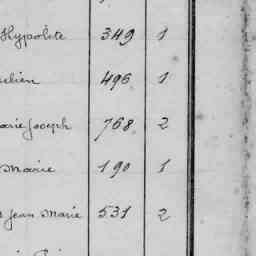 Hypolite 349 1
496 1
Joseph 768 2
Marie 190 1
Jean Marie 531 2